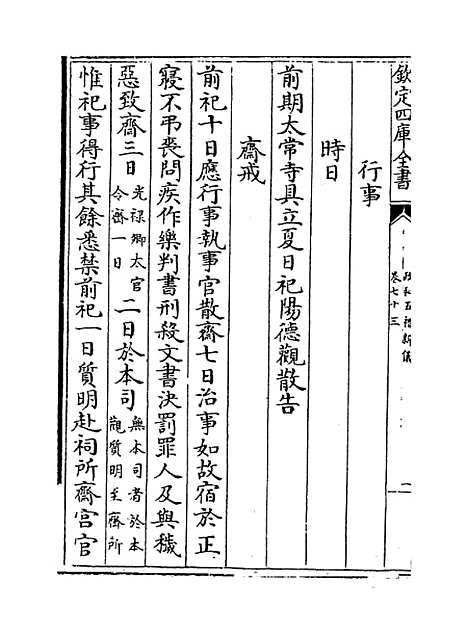 欽定四庫全書
政和五禮新儀
卷七十三
行事
時日
前期太常寺具立夏日祀陽德觀散告
齋戒
前祀十日應行事執事官散齋七日治事如故宿於正
寢不弔喪問疾作樂判書刑殺文書決罰罪人及與穢
惡致齋三日光禄卿太官令齋一日二日於本司無本司者於本觀質明至齋所
惟祀事得行其餘悉禁前祀一日質明赴祠所齋宫官